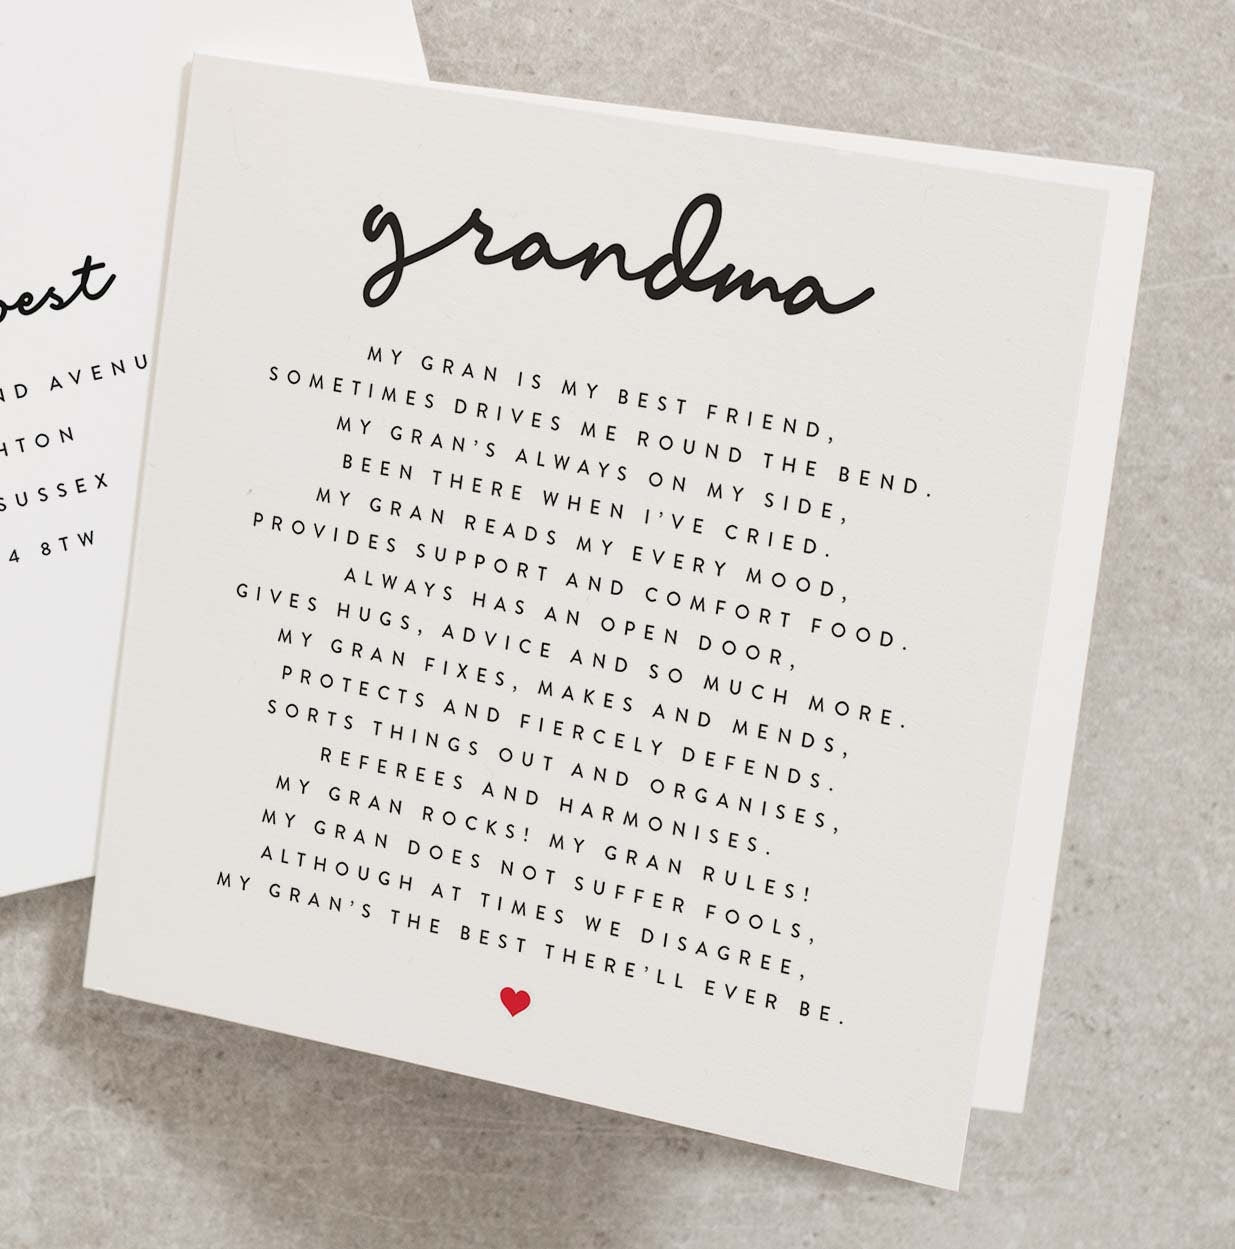 grandma
MY GRAN IS MY BEST FRIEND,
SOMETIMES DRIVES ME ROUND THE BEND.
MY GRAN'S ALWAYS ON MY SIDE,
BEEN THERE WHEN I'VE CRIED.
MY GRAN READS MY EVERY MOOD,
PROVIDES SUPPORT AND COMFORT FOOD.
ALWAYS HAS AN OPEN DOOR,
GIVES HUGS, ADVICE AND SO MUCH MORE.
MY GRAN FIXES, MAKES AND MENDS,
PROTECTS AND FIERCELY DEFENDS.
SORTS THINGS OUT AND ORGANISES,
REFEREES AND HARMONISES.
MY GRAN ROCKS! MY GRAN RULES!
MY GRAN DOES NOT SUFFER FOOLS,
ALTHOUGH AT TIMES WE DISAGREE,
MY GRAN'S THE BEST THERE'LL EVER BE.
best
ND AVENU
HTON
SUSSEX
4 8TW